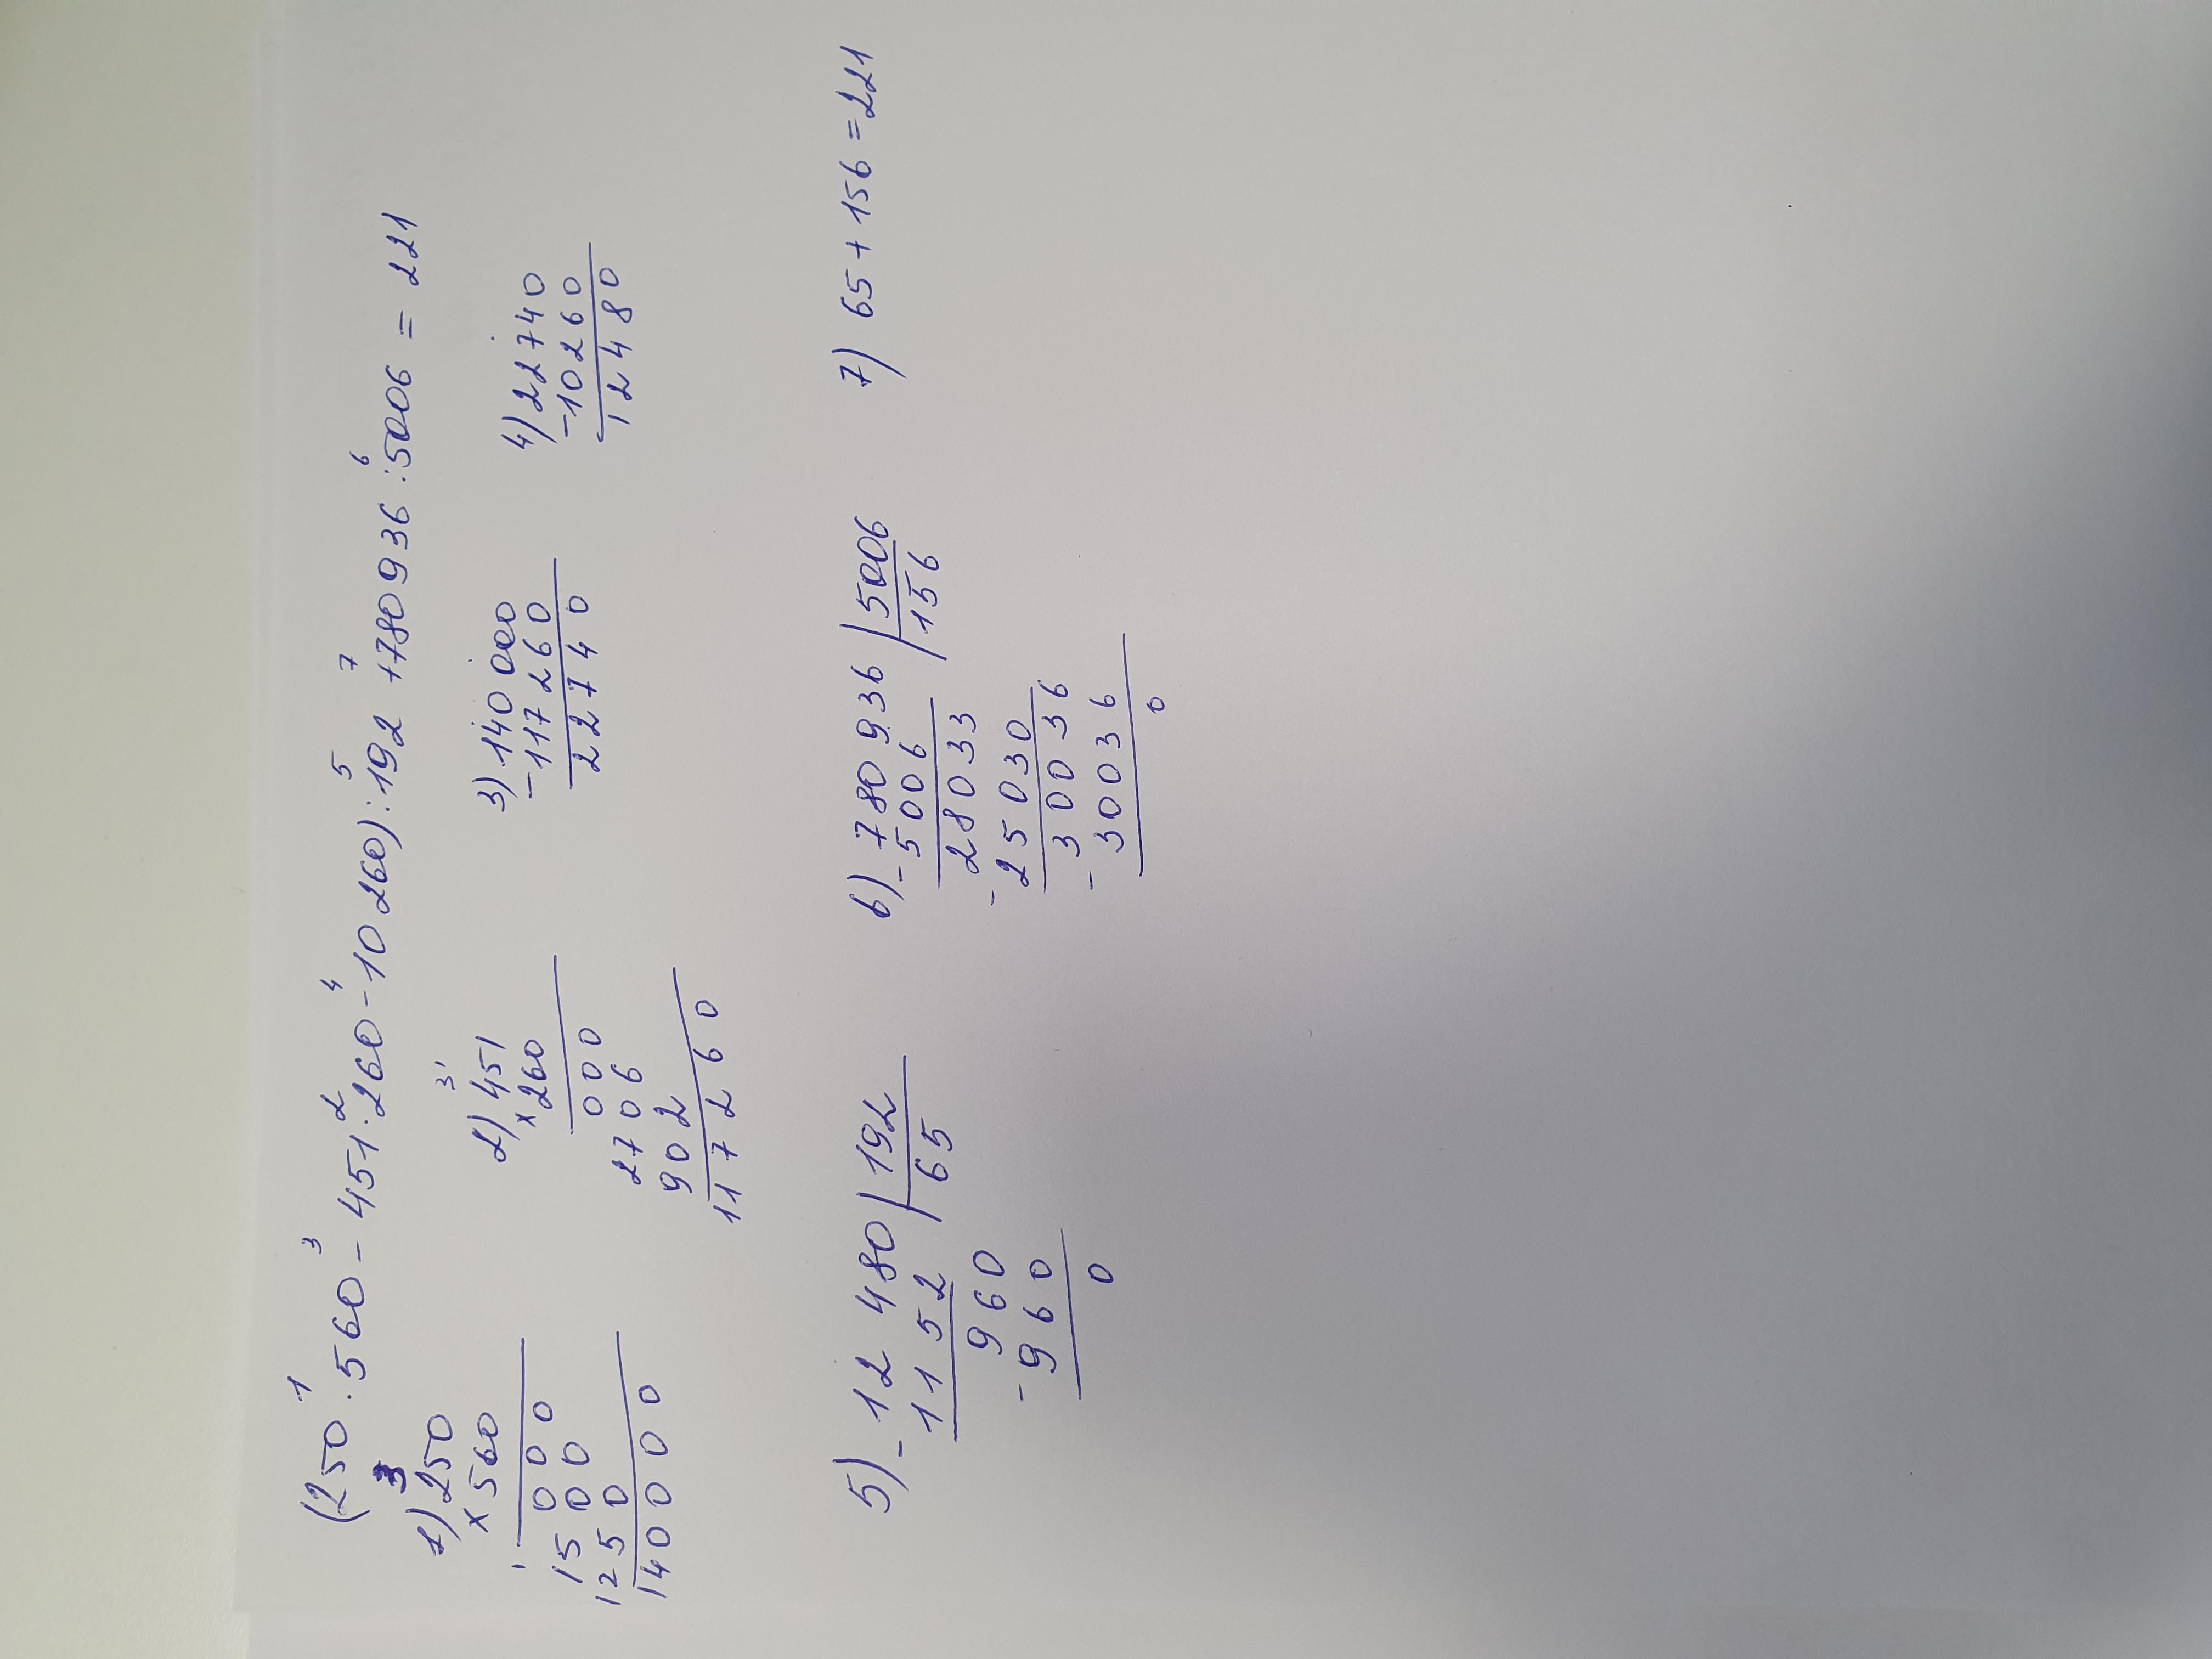 (250 · 560 - 451 · 260 - 10 260) : 192 + 780 936 : 5006 = 221
1 3 2 4 5 7 6
1) 250
× 560
000
1500
1250
140000
2) 451
× 260
000
2706
902
117260
3) 140 000
- 117 260
22740
4) 22740
- 10260
12480
5) - 12 480 | 192
1152 65
960
- 960
0
6) - 780 936 | 5006
5006 156
28033
- 25030
30036
- 30036
0
7) 65 + 156 = 221